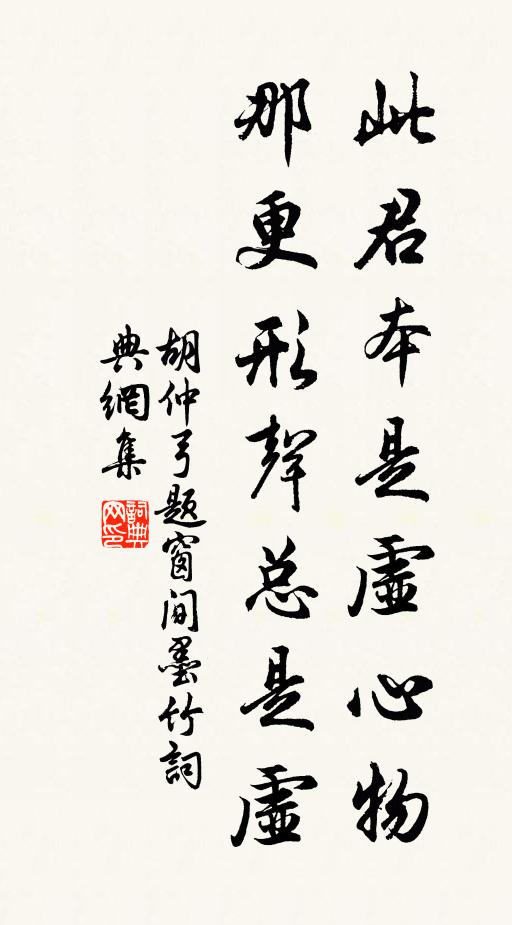 此君本是虛心物
那更形聲总是虛
胡仲弓题窗間墨竹詞
典網集
詞典网印